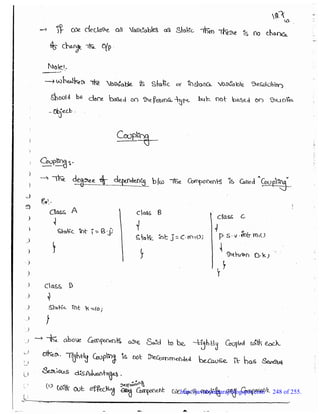 → If we declare all variables as static then there is no chance
to change the o/p.
Note:-
→ whether the variable is static or instance variable resolution
should be done based on reference type but not based on runtime
-object.
Coupling
Coupling:-
→ The degree of dependency b/w the components is called "Coupling"
Ex:-
class A
{
static int i = B.j;
}
class B
{
static int j = C.m1();
}
class C
{
p.s.v. int m1()
{
return D.k;
}
}
class D
{
static int k=10;
}
→ the above components are said to be tightly coupled with each
other. Tightly coupling is not recommended because it has several
serious disadvantages.
(i) without effecting remaining any component
248 of 255.